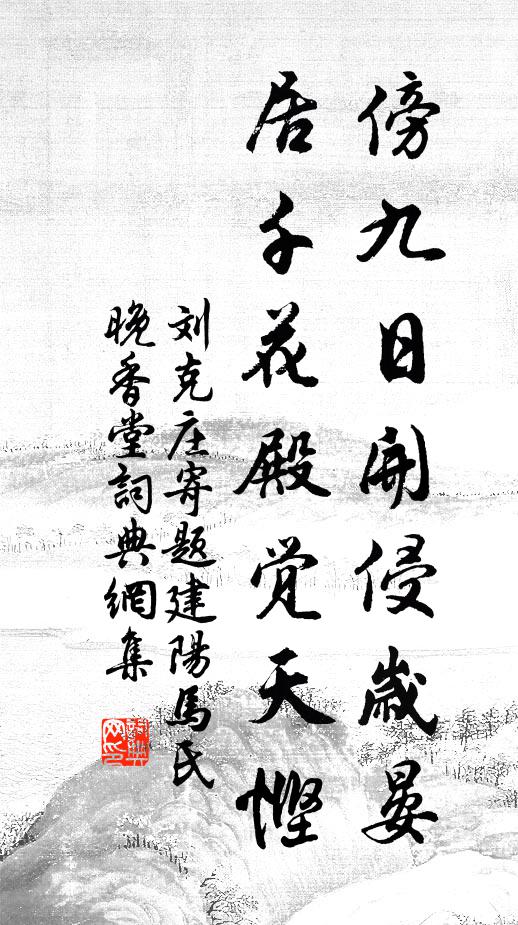 傍九日開侵歲晏
居千花殿覚天慳
刘克庄寄题建陽馬氏
晚香堂詞典網集